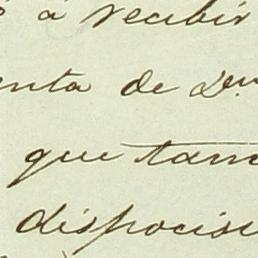 a recibir
enta de Dn
que tam
disposici